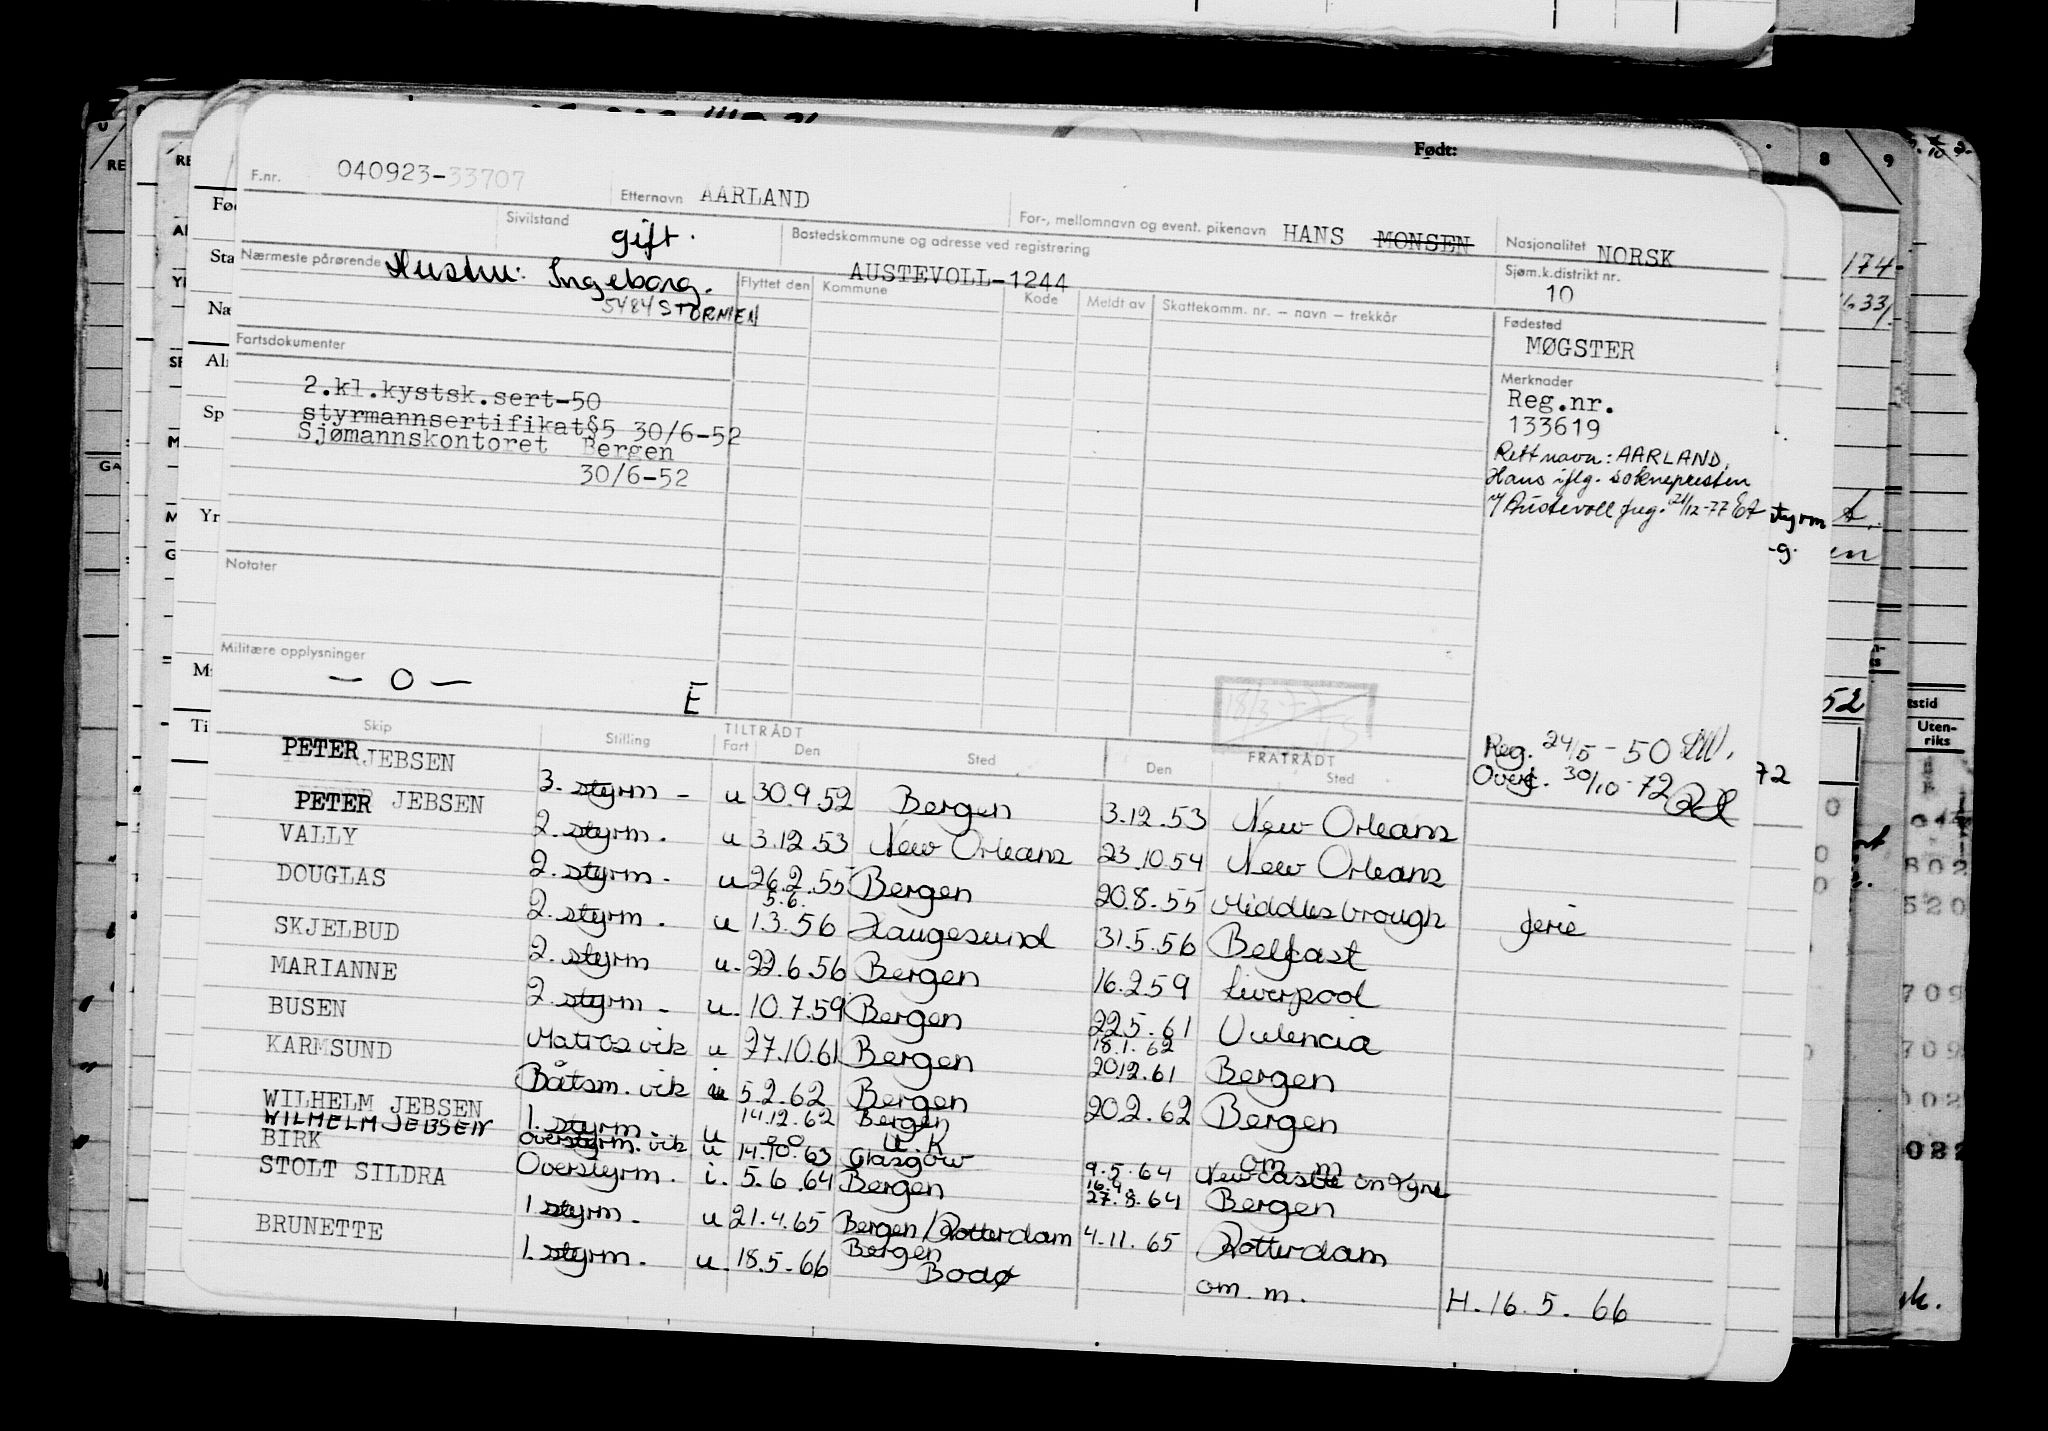 Født:
F.nr. 040923-33707
Etternavn AARLAND
For-, mellomnavn og event. pikenavn HANS MONSEN
Nasjonalitet NORSK
Sivilstand gift.
Bostedskommune og adresse ved registrering
AUSTEVOLL-1244
Sjøm.k.distrikt nr.
10
Nærmeste pårørende Hustru: Ingeborg.
5484 STORMEN
Flyttet den Kommune Kode Meldt av Skattekomm. nr. – navn – trekkår
Fødested
MØGSTER
Fartsdokumenter
2.kl.kystsk.sert-50
styrmannsertifikat§5 30/6-52
Sjømannskontoret Bergen
30/6-52
Merknader
Reg.nr.
133619
Rett navn: AARLAND,
Hans iflg. soknepresten
i/ Austevoll 21/12-77
Notater
Militære opplysninger
— O —
E
18/3-77
Reg. 24/5 - 50
Overf. 30/10-72
Skip Stilling TILTRÅDT Fart Den Sted FRATRÅDT Den Sted
PETER JEBSEN 3. styrm - u 30.9.52 Bergen 3.12.53 New Orleans
PETER JEBSEN 2. styrm. u 3.12.53 New Orleans 23.10.54 New Orleans
VALLY 2. styrm. u 26.2.55 Bergen 20.8.55 Middlesbrough ferie
5.6.
DOUGLAS 2. styrm. u 1.3.56 Haugesund 31.5.56 Belfast
SKJELBUD 2. styrm u. 22.6.56 Bergen 16.2.59 Liverpool
MARIANNE 2. styrm. u. 10.7.59 Bergen 22.5.61 Valencia
18.1.62
BUSEN Matros vik u 27.10.61 Bergen 20.12.61 Bergen
KARMSUND Båtsm. vik 5.2.62 Bergen 20.2.62 Bergen
WILHELM JEBSEN 1. styrm. u 14.12.62 Bergen U.K om m.
WILHELM JEBSEN overstyrm. vik u 14.10.63 Glasgow 9.5.64 Newcastle on Tyne
16.9
BIRK Overstyrm. i. 5.6.64 Bergen 27.8.64 Bergen
STOLT SILDRA 1 styrm. u 21.4.65 Bergen/Rotterdam 4.11.65 Rotterdam
BRUNETTE 1. styrm. u. 18.5.66 Bergen Bodø om. m. H. 16.5.66